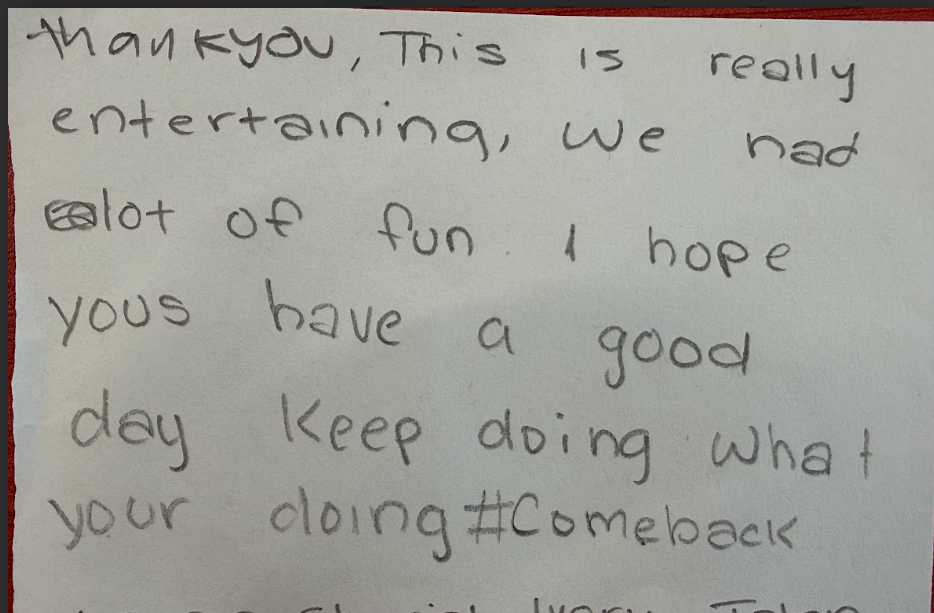 thankyou, This is really
entertaining, we had
alot of fun. I hope
yous have a good
day Keep doing what
your doing #Comeback